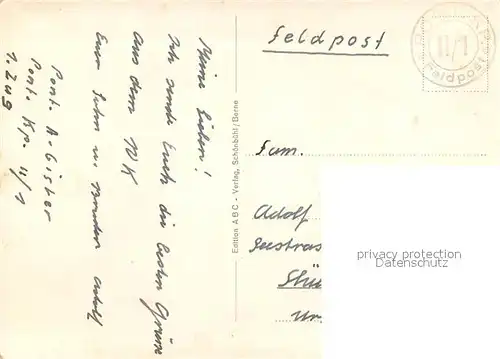 Meine Lieben!
Ich sende Euch die besten Grüsse
aus dem WK
Euer Sohn u. Bruder Adolf
Pont. A. Gisler
Pont. Kp. II/1
1. Zug
Edition ABC - Verlag, Schönbühl/Berne
Feldpost
II/1
Feldpost
Fam.
Adolf
Seestras
privacy protection
Datenschutz